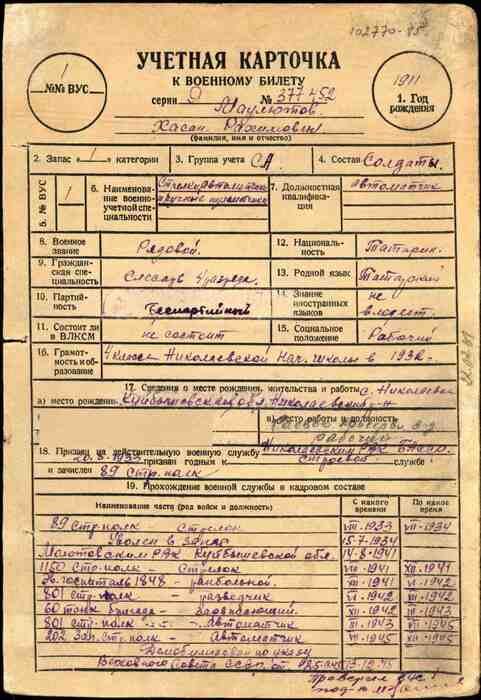 102770-85.
УЧЕТНАЯ КАРТОЧКА
К ВОЕННОМУ БИЛЕТУ
серии 9 № 377452
1
№№ ВУС
1911
1. Год рождения
Маулютов
Хасан Рахимович
(фамилия, имя и отчество)
2. Запас „1" категории
3. Группа учета СА.
4. Состав Солдаты.
5. № ВУС 1
6. Наименование военно-учетной специальности
7. Должностная квалификация
автоматчик
8. Военное звание Рядовой.
12. Национальность Татарин.
9. Гражданская специальность Слесарь 4 разряда.
13. Родной язык Татарский
10. Партийность Беспартийный
14. Знание иностранных языков не владеет.
11. Состоит ли в ВЛКСМ не состоит
15. Социальное положение Рабочий
16. Грамотность и образование 4 класса Николаевской Нач. школы в 193
17. Сведения о месте рождения, жительства и работы с. Николаевка
а) место рождения Куйбышевская обл. Николаевский р-н
в) место работы и должность
рабочий
18. Призван на действительную военную службу Николаевским РВК
20.8-1933 признан годным к строевой службе
и зачислен 89 стр. полк
19. Прохождение военной службы в кадровом составе
Наименование части (род войск и должность)
С какого времени
По какое время
89 стр. полк - Стрелок VII-1933 VII-1934
Уволен в запас 15-7-1934
Молотовским РВК Куйбышевской обл. 14-8-1941
1150 стр. полк - Стрелок VIII-1941 XII-1941
Эвгоспиталь 1848 - ранбольной. XII-1941 VI-1942
801 стр. полк - разведчик VI-1942 XII-1942
60 танк. бригада - Заряжающий. XII-1942
801 стр. полк - Автоматчик VII-1945
202 Зап. стр. полк - Автоматчик VII-1945 XII-1945
Демобилизован по указу
Верховного Совета СССР от 13-12-45
Проверил